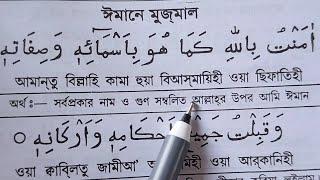 ঈমানে মুজমাল
اٰمَنْتُ بِاللّٰهِ كَمَا هُوَ بِاَسْمَآئِهٖ وَصِفَاتِهٖ
আমানতু বিল্লাহি কামা হুয়া বিআসমায়িহী ওয়া ছিফাতিহী
অর্থ:— সর্বপ্রকার নাম ও গুণ সম্বলিত আল্লাহর উপর আমি ঈমান
وَقَبِلْتُ جَمِيْعَ اَحْكَامِهٖ وَاَرْكَانِهٖ
ওয়া ক্বাবিলতু জামীআ' মিহী ওয়া আরকানিহী